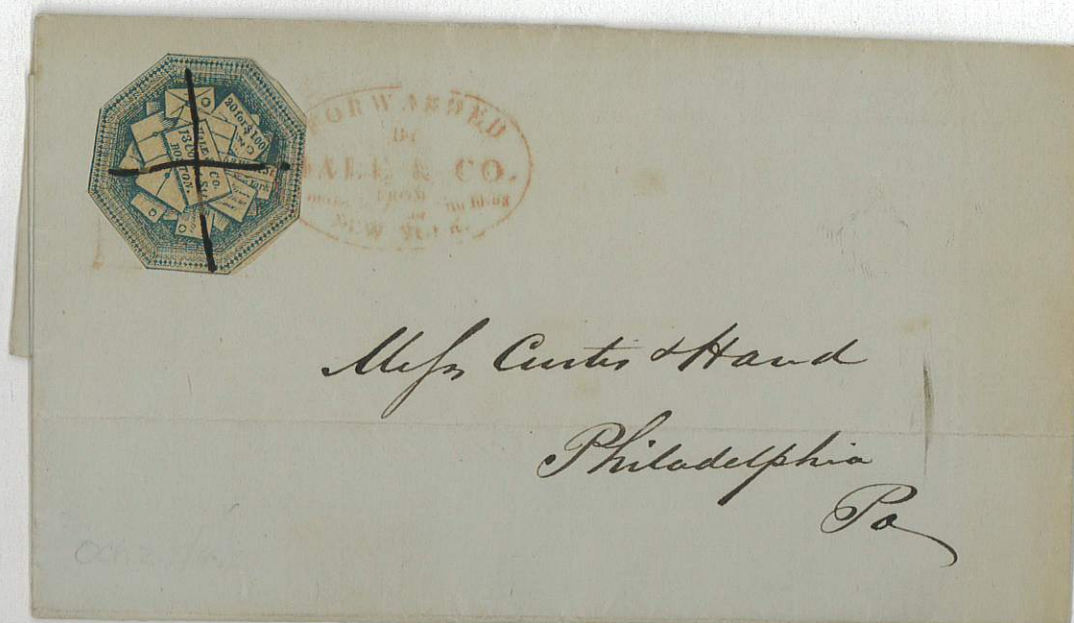 20 for $1.00
HALE & CO.
13 Co
BOSTON.
FORWARDED
By
HALE & CO.
FROM
NEW YORK.
Mess Curtis & Hand
Philadelphia
Pa